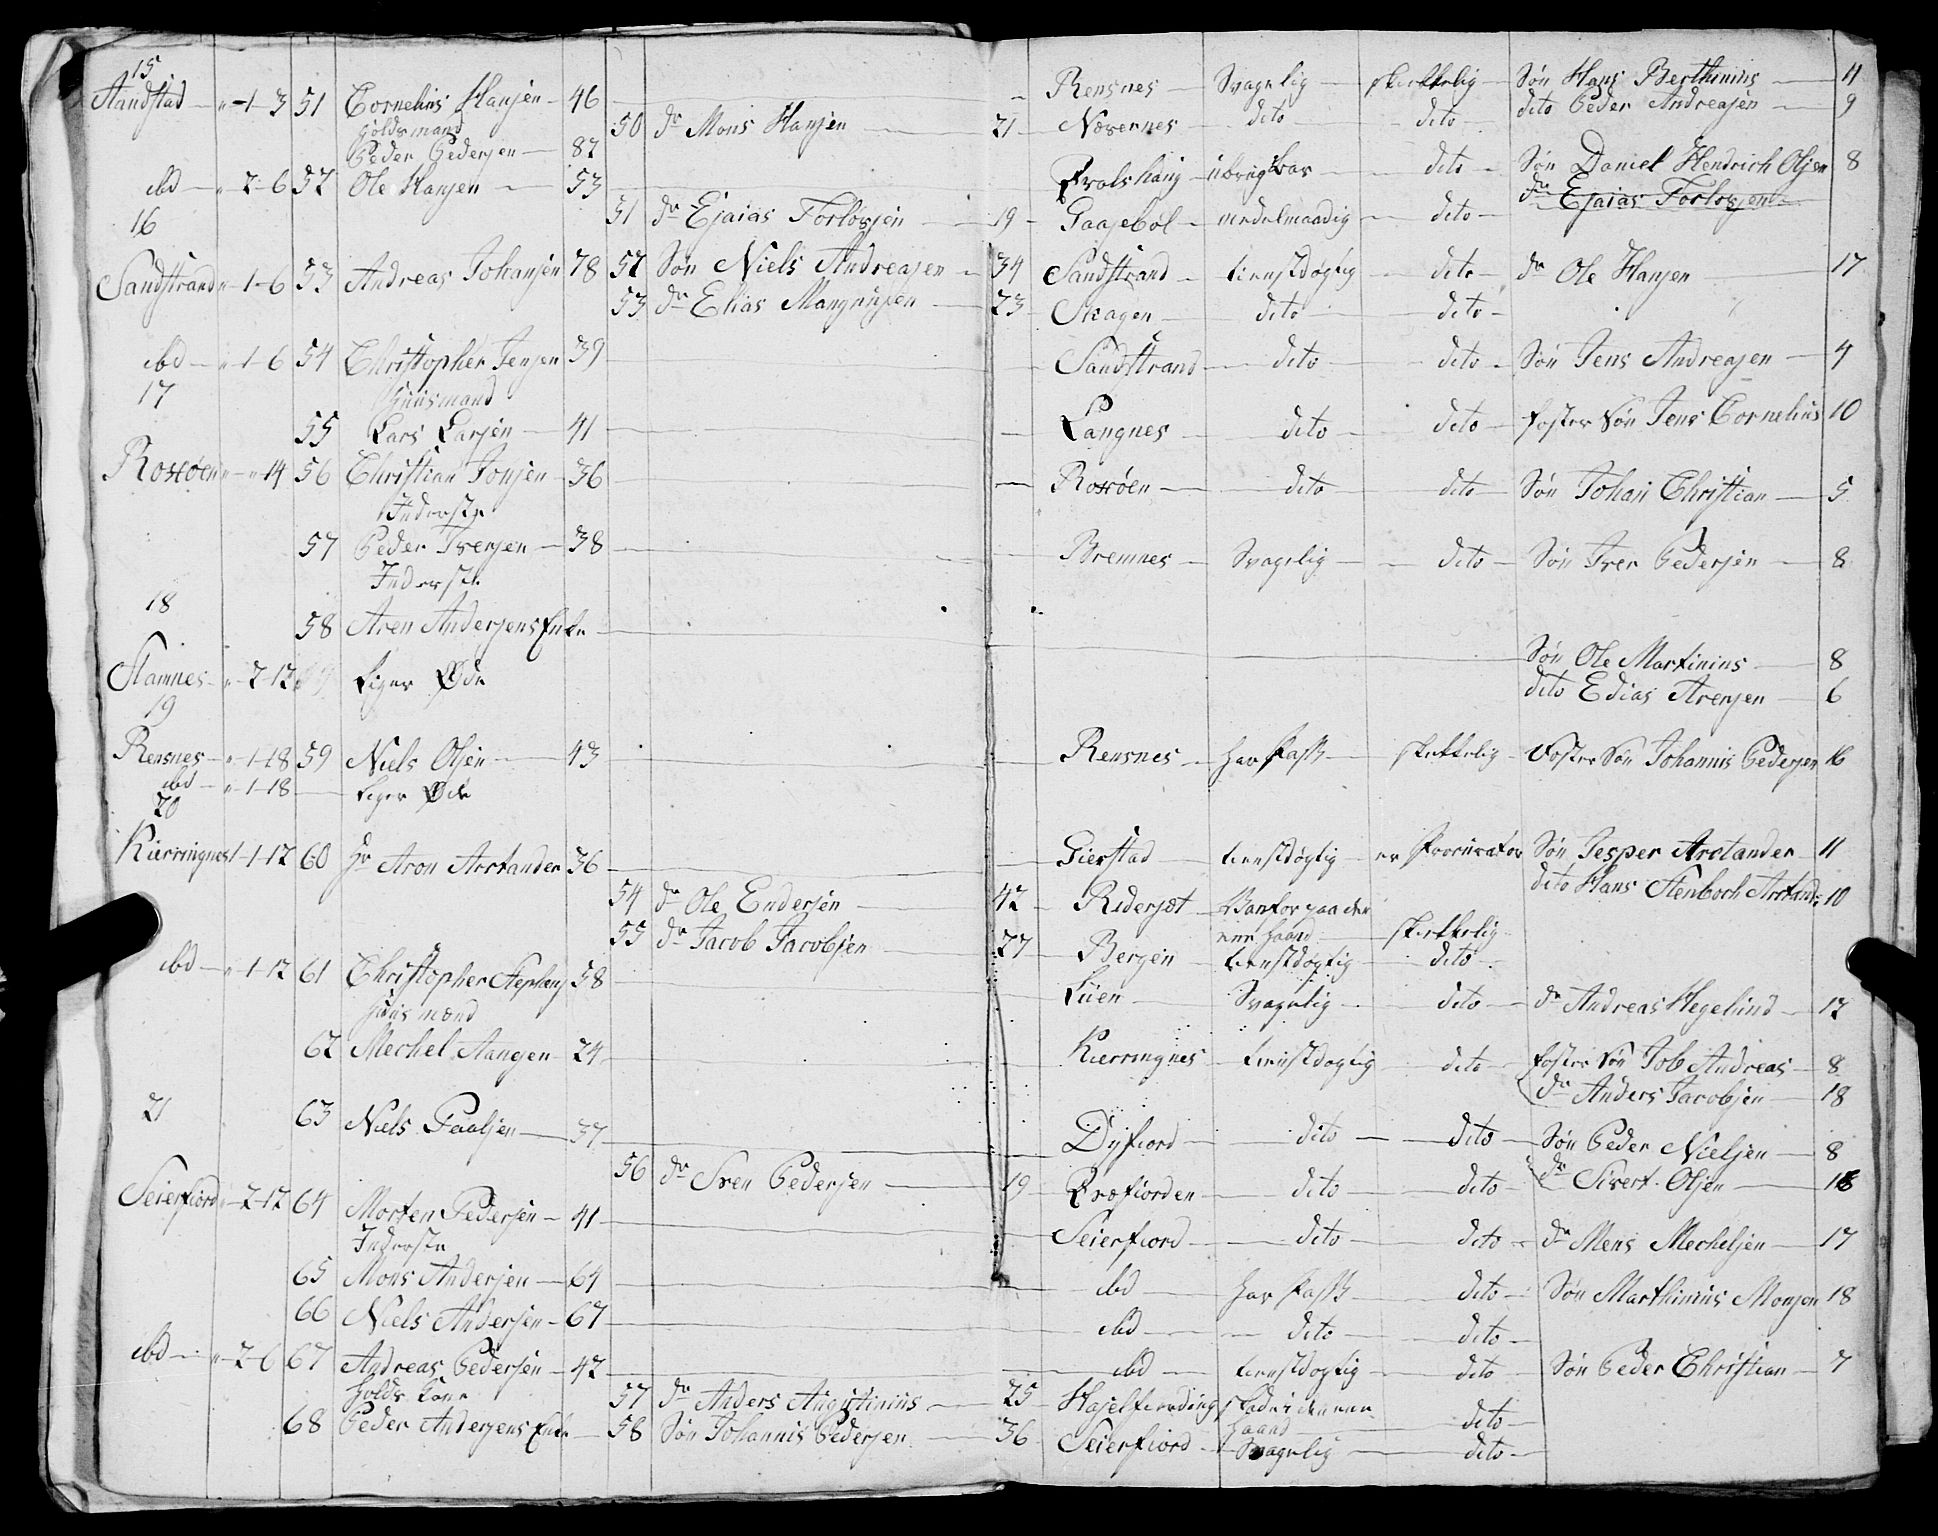 15
Sandstad — " – 1 – 3 51 Cornelius Hansen — 46 — Rensnes — Svagelig — skikkelig — Søn Hans Berthinius — 11
Holdsmand 50 dr Mons Hansen — 21 — Nævernes — dito — dito — dito Peder Andreasen — 9
Peder Pedersen — 82
ibd — " – 2 – 6 52 Ole Hansen — 53 — ubrugbar — dito — Søn Daniel Hendrich Olsen 8
51 dr Esaias Torlovsen — 19 — Gaasebøl — midelmaadig — dito — dr Esaias Torlovsen
16
Sandstrand " – 1 – 6 53 Andreas Johansen 78 52 Søn Niels Andreasen — 34 Sandstrand — tienstdøgtig — dito — dr Ole Hansen — 17
53 dr Elias Mangnusen — 23 — Skagen — dito — dito —
ibd — " – 1 – 6 54 Christopher Jensen 39 — Sandstrand — dito — dito — Søn Jens Andreasen — 4
17
Huusmand
55 Lars Larsen — 41 — Langnes — dito — dito — foster Søn Jens Cornelius 10
Roxøen " – " 14 56 Christian Jonsen — 36 — Roxøen — dito — dito — Søn Johan Christian — 5
Inderste
57 Peder Iversen — 38 — Bremnes — Svagelig — dito — Søn Iver Pedersen — 8
Inderste
18
58 Aren Andersens Enke — Søn Ole Martinius — 8
Stamnes — " – 2 – 12 Liger Øde dito Edias Arensen — 6
19
Rensnes — " – 1 – 18 59 Niels Olsen — 43 — Rensnes — har Pass — skikkelig — Foster Søn Johannis Pedersen 16
ibd — " – 1 – 18 — Liger Øde
20
Kierringnes 1 – 1 – 12 60 Hr Aron Arctander 36 — Gierstad — tienstdøgtig — er Procurator Søn Jesper Arctander — 11
dito Hans Stenboch Arctand: 10
54 dr Ole Endersen — 42 — Ridersæt — Vanfør paa den
ene haand — skikkelig
55 dr Jacob Jacobsen — 27 — Bergen — tienstdøgtig — dito —
ibd — " – 1 – 12 61 Christopher Stephens 58 — Lien — Svagelig — dito — dr Andreas Hegelund — 12
Huusmænd
62 Mechel Aangen — 24 — Kierringnes — tienstdøgtig — dito — foster Søn Job Andreas — 8
dr Anders Jacobsen — 18
21
63 Niels Paalsen — 37 — Dyfiord — dito — dito — Søn Peder Nielsen — 8
56 dr Sven Pedersen — 19 — Præfiorden — dito — dito — dr Sivert Olsen — 18
Seierfiord " – 2 – 12 64 Morten Pedersen — 41 — Seierfiord — dito — dito — dr Mons Mechelsen — 17
Inderste
65 Mons Andersen — 64 — ibd — har Pass — dito — Søn Marthinius Monsen 18
66 Niels Andersen — 67 — ibd — dito — dito —
ibd — " – 2 – 6 67 Andreas Pedersen — 42 — ibd — tienstdogtig — dito — Søn Peder Christian — 7
Holds Kone 57 dr Anders Augustinius — 25 Haselfiording skade i den ene
haand — dito —
68 Peder Andersens Enke — 58 Søn Johannis Pedersen — 36 — Seierfiord — Svagelig — dito —